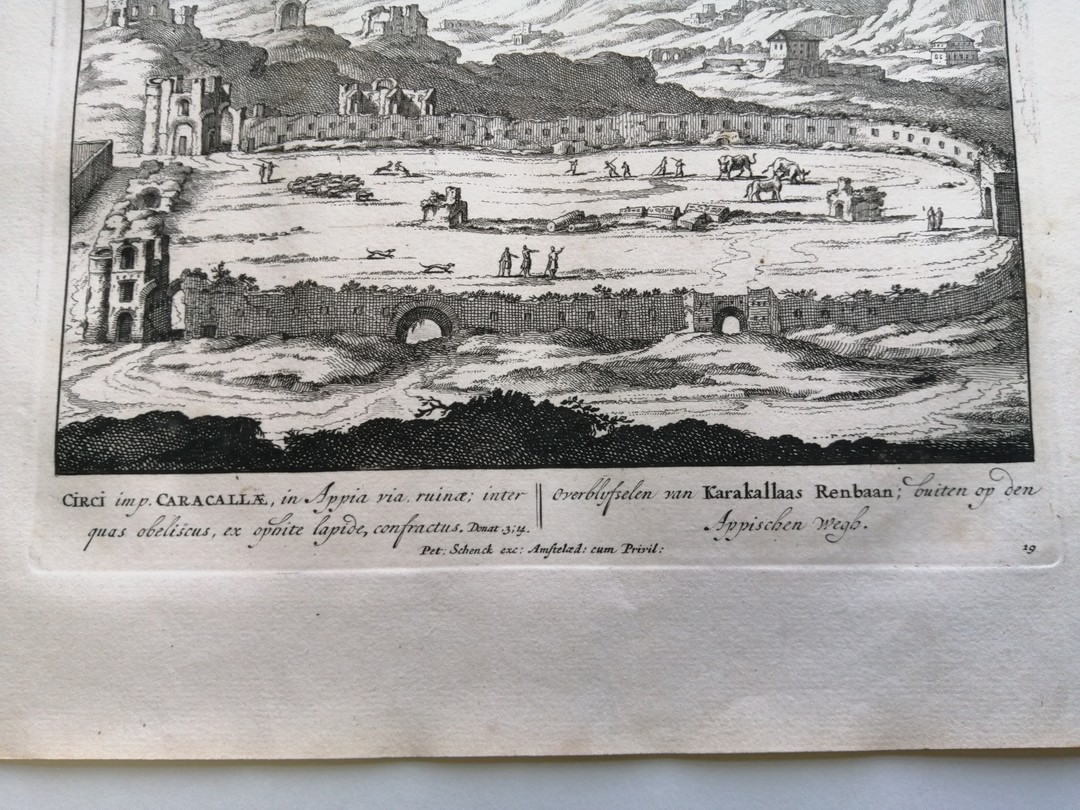 CIRCI imp. CARACALLÆ, in Appia via, ruinæ; inter
quas obeliscus, ex ophite lapide, confractus. Donat 3; 14.
Overblyfselen van Karakallaas Renbaan; buiten op den
Appischen Wegh.
Pet: Schenck exc: Amstelæd: cum Privil:
19